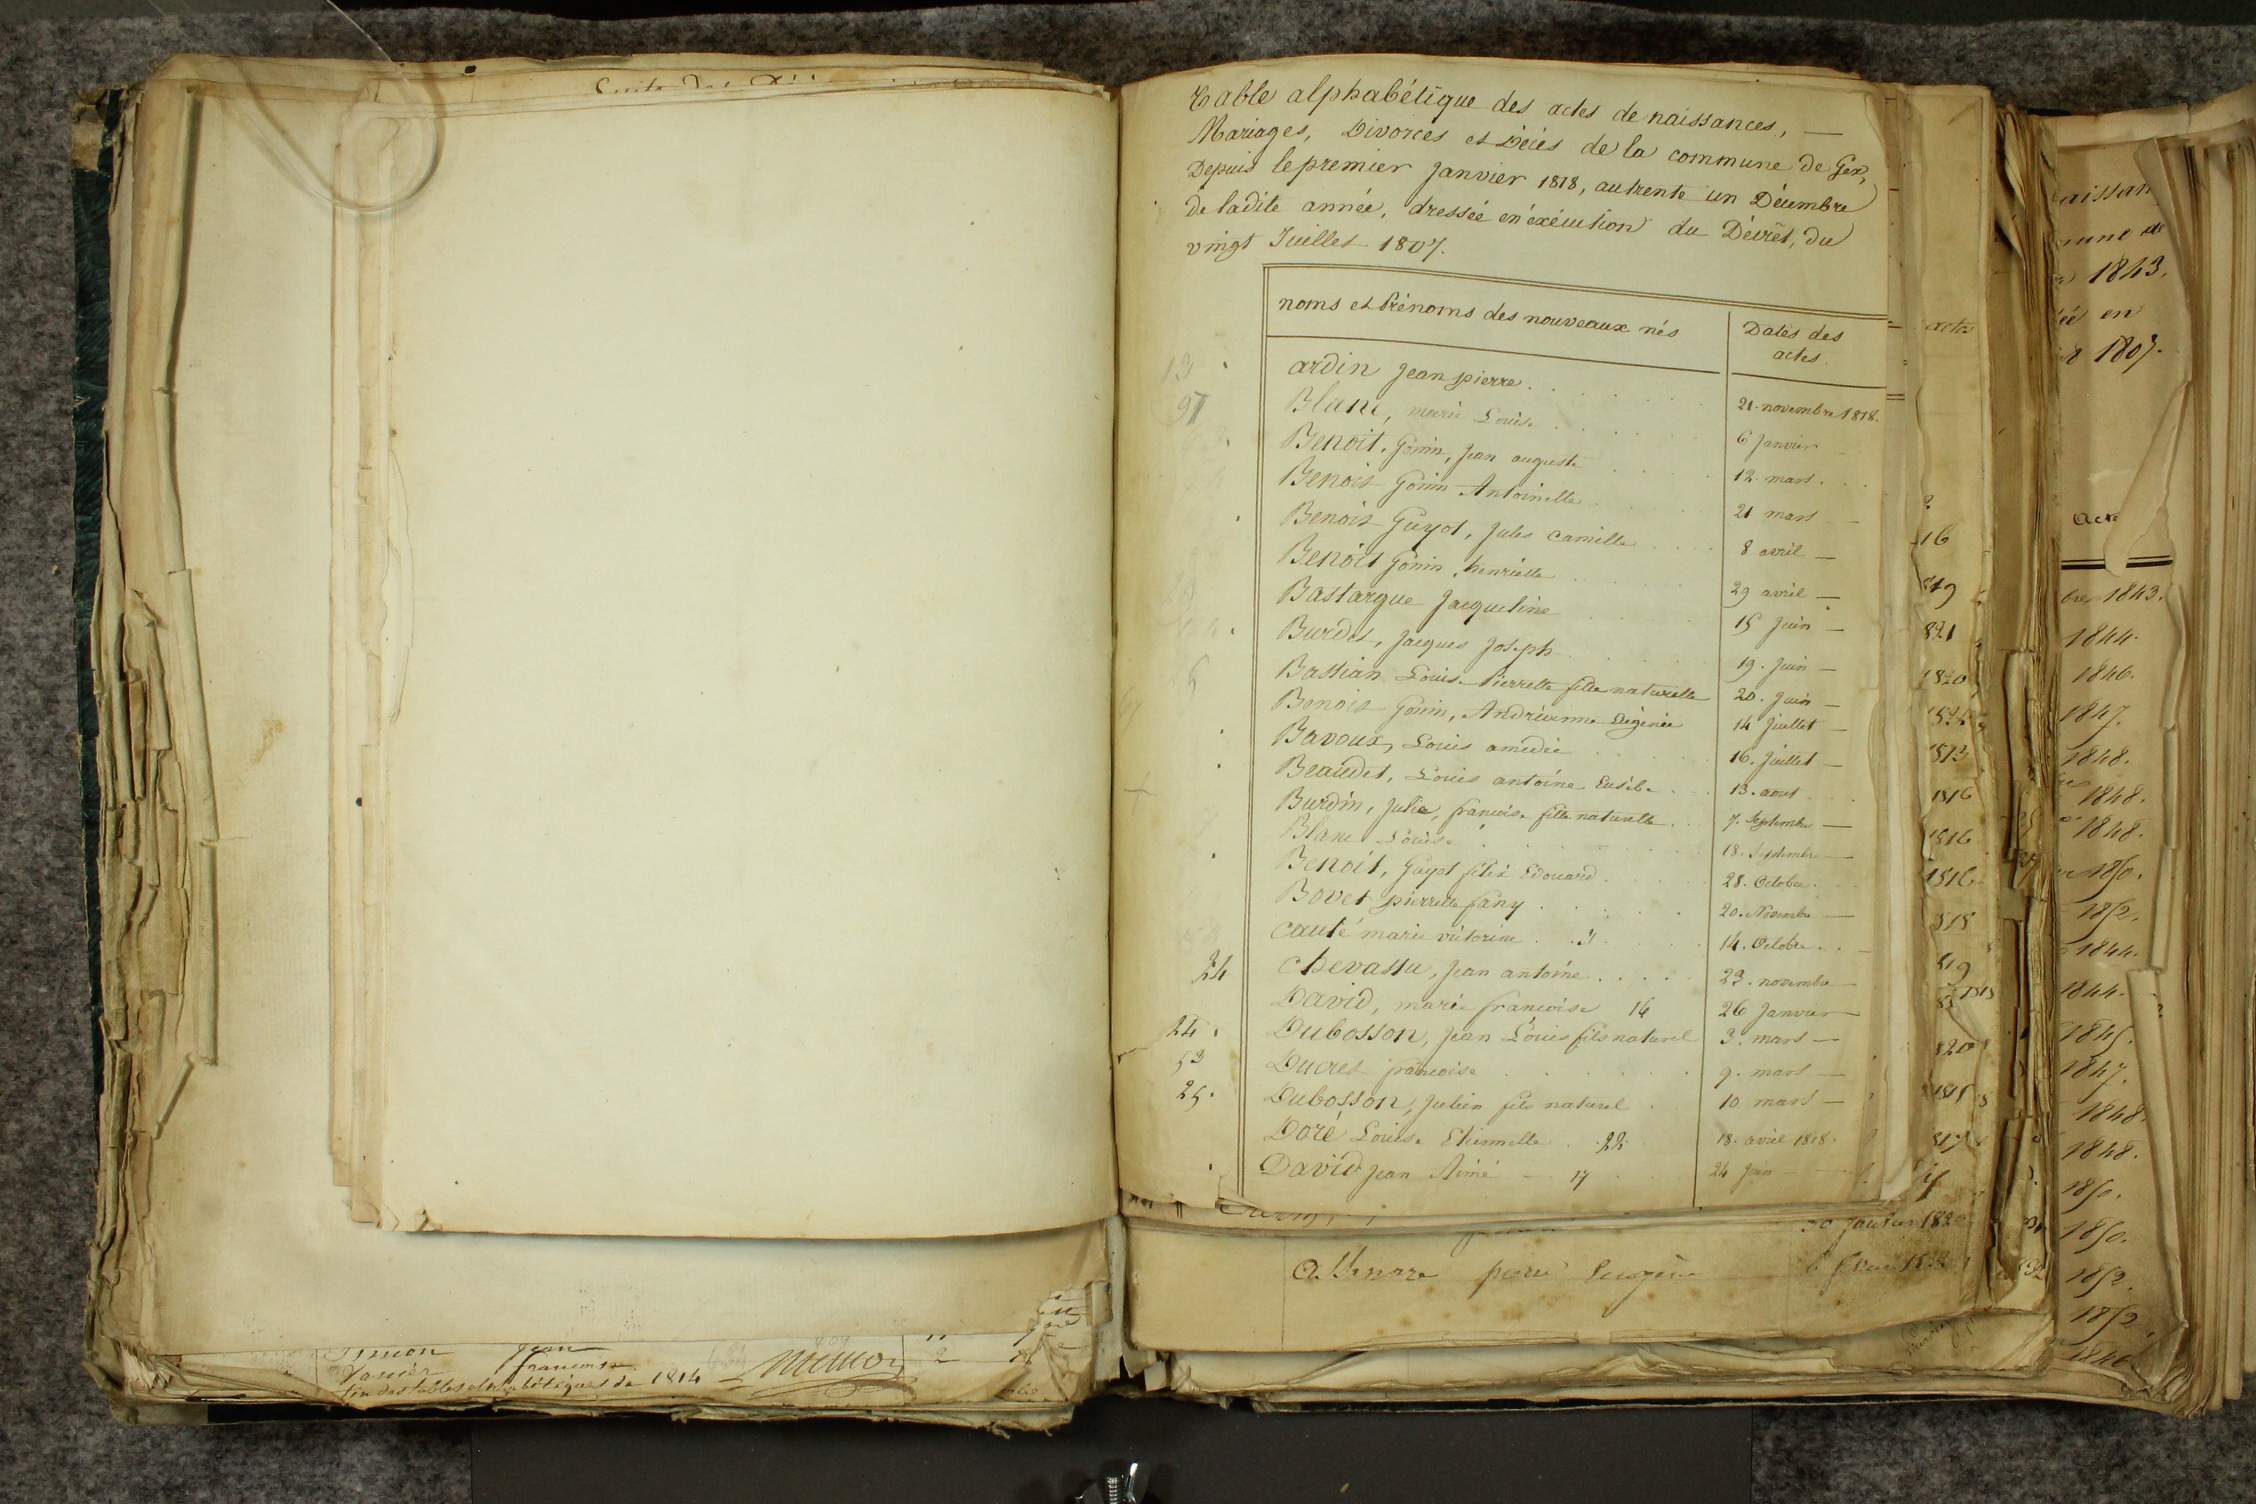 Table alphabétique des actes de naissances, —
Mariages, Divorces et Décés de la commune de Gex,
Depuis le premier Janvier 1818, au trente un Décembre
de ladite année, dressée en éxécution du Décret, du
vingt Juillet 1807.
noms et Prénoms des nouveaux nés Dates des actes.
ardin Jean pierre 21. novembre 1818.
97 Blanc, marie Louise 6 Janvier
Benoit, Gonin, Jean auguste 12. mars
Benoit Gonin Antoinette 21 mars —
Benoit Guyot, Jules Camille 8 avril —
Benoit Gonin, henriette 29 avril —
Bastarque Jacqueline 15 Juin —
Burdet, Jacques Joseph 19. Juin —
Bastian Louise Pierrette fille naturelle 20. Juin —
Benoit Gonin, Andrienne 14 Juillet —
Bavoux, Louis amedée 16. Juillet —
Beaudet, Louis antoine Eusèbe 13. aout
Burdin, Julie, francoise fille naturelle 7. Septembre —
Blanc Louise 18. Septembre —
Benoit, Guyot félix Edouard 28. Octobre
Bovet pierrette fany 20. Novembre —
Cauté marie victorine 14. Octobre
24 Chevassu, Jean antoine 23. novembre —
David, marie francoise 16 26 Janvier —
24. Dubosson, Jean Louis fils naturel 3. mars —
53 Ducret francoise 9. mars —
25. Dubosson, Julien fils naturel 10 mars —
Doré Louise Etiennette 22 18. avril 1818.
David Jean Aimé — 17 24 Juin
Simon Jean
Vanier francoise
fin des tables alphabétiques de 1814
actes
16
819
821
1820
1816
1816
1816
1843.
en
1807.
1843.
1844.
1846.
1847.
1848.
1848.
1848.
1850.
1852.
1844.
1844.
1845.
1847.
1848.
1848.
1850.
1850.
1852.